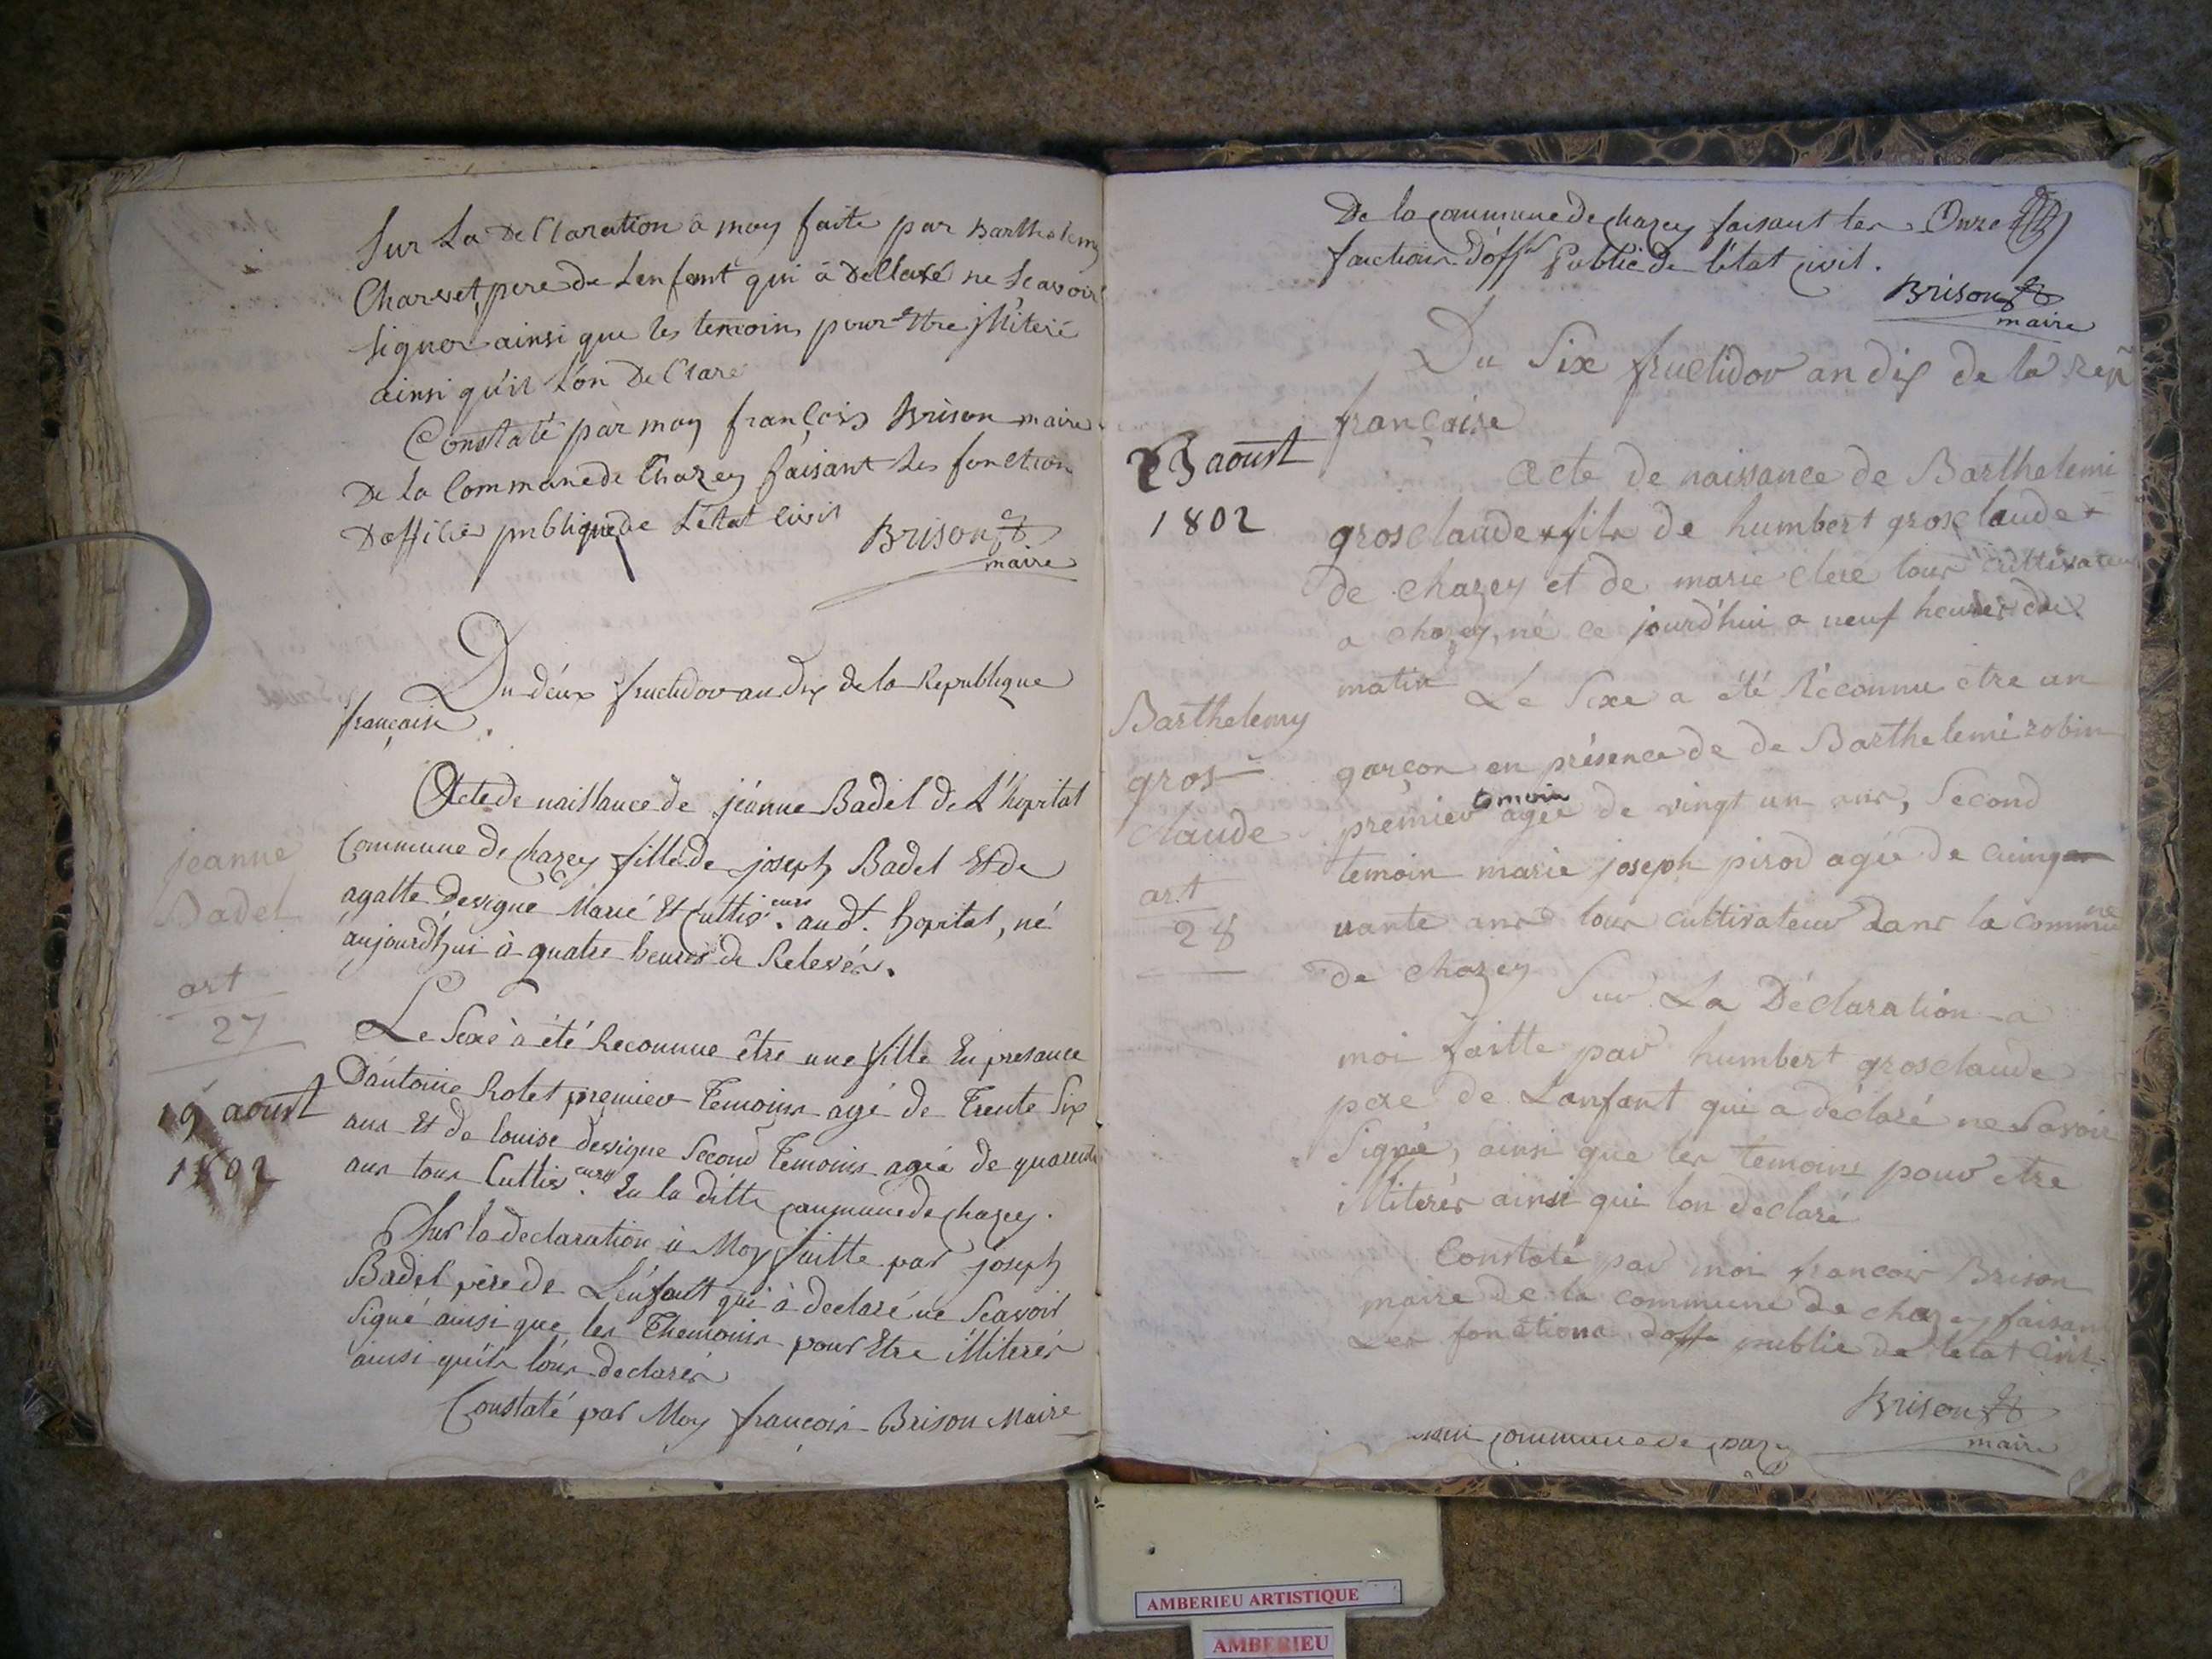 Sur La DeClaration à moy faite par Barthelemy
Charvet, pere de L'enfant qui à DeClaré ne Scavoir
signer ainsi que les temoins pour Etre jlliteré
ainsi qu'il l'on DeClare
Constaté par moy françois Brison maire
De la Commune de Chazey faisant les fonction
D'officié publique de L'état Civil
Brison
maire
Du deux fructidor an dix de la Republique
française.
jeanne
Badel
art
27
19 aoust
1802
Acte de naissance de jéanne Badel de L'hopital
Commune de chazey fille de joseph Badel Et de
agatte Devigne Marié Et Cultiv.eurs au dt. hopital, né
aujourd'hui à quatre heures de Relevér.
Le Sexe à été Reconnue être une fille En presance
D'antoine Rolet premier Temoins agé de Trente Six
ans Et de louise devigne Second Temoins agée de quarente
ans tous Cultiv.eurs En la ditte commune de chazey.
Sur la declaration à Moy faitte par joseph
Badel père de L'énfant qui à declaré ne Scavoir
Signé ainsi que les Themoins pour Etre illiterér
ainsi qu'ils l'ons declarér
Constaté par Moy françois Brison Maire
De la commune de chazey faisant les Onze
fonctions d'offer Public De l'état civil.
Brison
maire
Du Six fructidor an dix de la repu
française
23 aoust
1802
Barthelemy
gros
claude
art
28
Acte de naissance de Barthelemi
grosclaude fils de humbert grosclaude
de chazey et de marie clere tous cultivateur
a chazey, né ce jourd'hui a neuf heures du
matin Le Sexe a été Réconnu être un
garçon en présence de de Barthelemi robin
premier temoin agée de vingt un ans, Second
temoin marie joseph pirod agée de cinq
uante ans tous cultivateur dans la commune
de chazey Sur La Déclaration a
moi faitte par humbert grosclaude
pere de L'anfant qui a déclaré ne Savoir
Signé, ainsi que les temoins pour etre
illiterér ainsi qui lon déclaré
Constaté par moi francois Brison
maire de la commune de chazey faisant
Les fonctions d'offe public de letat Civil
Brison
maire
commune de chazey
AMBERIEU ARTISTIQUE
AMBERIEU